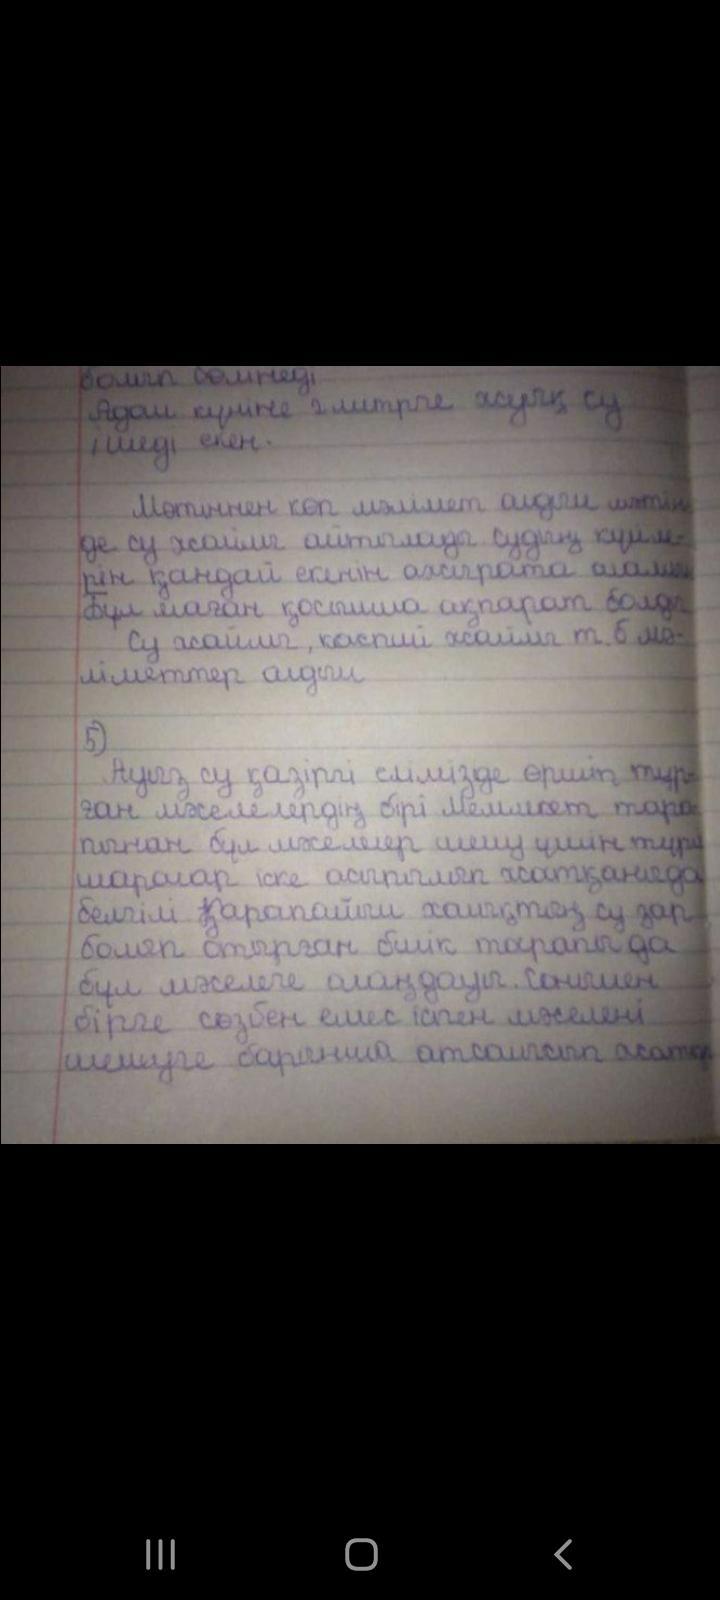 болып бөлінеді
Адам күніне 2 литрге жуық су
ішеді екен.
Мәтіннен көп мәлімет алдым мәтін
де су жайлы айтылады судың күйле-
рін қандай екенін ажырата аламын
Бұл маған қосымша ақпарат болды
Су жайлы, каспий жайлы т.б мә-
ліметтер алдым
5)
Ауыз су қазіргі елімізде өршіп тұр-
ған мәселелердің бірі Мемлекет тара-
пынан бұл мәселелер шешу үшін түрлі
шаралар іске асырылып жатқаны да
белгілі Қарапайым халықтың су зар
болып отырған билік тарапы да
бұл мәселеге алаңдаулы. Сонымен
бірге сөзбен емес іспен мәселені
шешуге барынша атсалысып жатыр